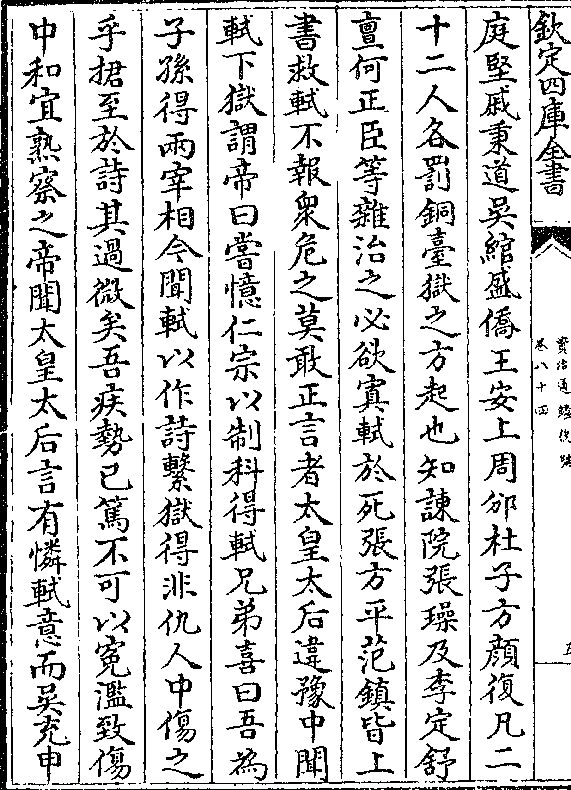 欽定四庫全書
資治通鑑後編
卷八十四
五
庭堅戚秉道吳綰盛僑王安上周邠杜子方顔復凡二
十二人各罰銅臺獄之方起也知諫院張璪及李定舒
亶何正臣等雜治之必欲寘軾於死張方平范鎮皆上
書救軾不報衆危之莫敢正言者太皇太后違豫中聞
軾下獄謂帝曰嘗憶仁宗以制科得軾兄弟喜曰吾為
子孫得兩宰相今聞軾以作詩繫獄得非仇人中傷之
乎捃至於詩其過微矣吾疾勢已篤不可以寃濫致傷
中和宜熟察之帝聞太皇太后言有憐軾意而吳充申